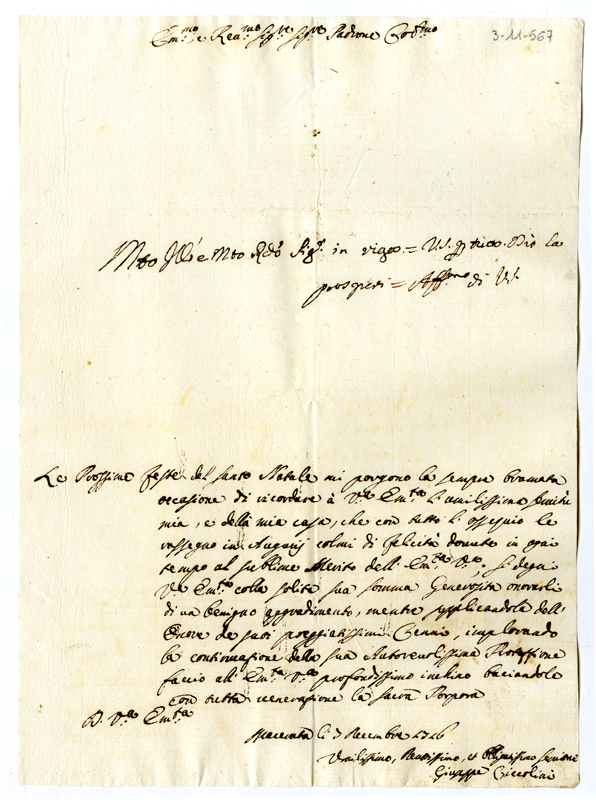 3-11-567
Em.mo e Rea.mo Sig.re Sig.re Padrone Col.mo
Mto Ill.e Mto Rdo Sig.r in riga = V.S. Dio la
prosperi = Aff.mo di V.S.
Le Prossime feste del Santo Natale mi porgono la sempre bramata
occasione di ricordare à V.ra Em.za l'umilissima servitù
mia, e della mia casa, che con tutto l'ossequio le
rassegno in Augurij colmi di felicità donute in ogni
tempo al sublime Merito dell'Em.za V.ra. Si degni
V.ra Em.za colla solita sua somma Generosità onorarli
di un benigno aggradimento, mentre supplicandola dell'
Onore de suoi preggiatissimi Cenni, implorando
la continuazione della sua Autorevolissima Protezzione
faccio all'Em.za V.ra profondissimo inchino baciandole
con tutta venerazione la sacra Porpora
D. V.ra Em.za
Macerata li 3 Decembre 1726
Umilissimo, Devotissimo, et Obligatissimo Servitore
Giuseppe Ciccolini